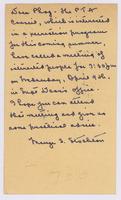 Dear Phag: The P.T.A.
Council, which is interested
in a recreation program
for this coming summer,
have called a meeting of
interested people for 7:30 pm
on Wednesday, April 9th,
in Supt Davis' office.
I hope you can attend
this meeting and give us
some practical advice.